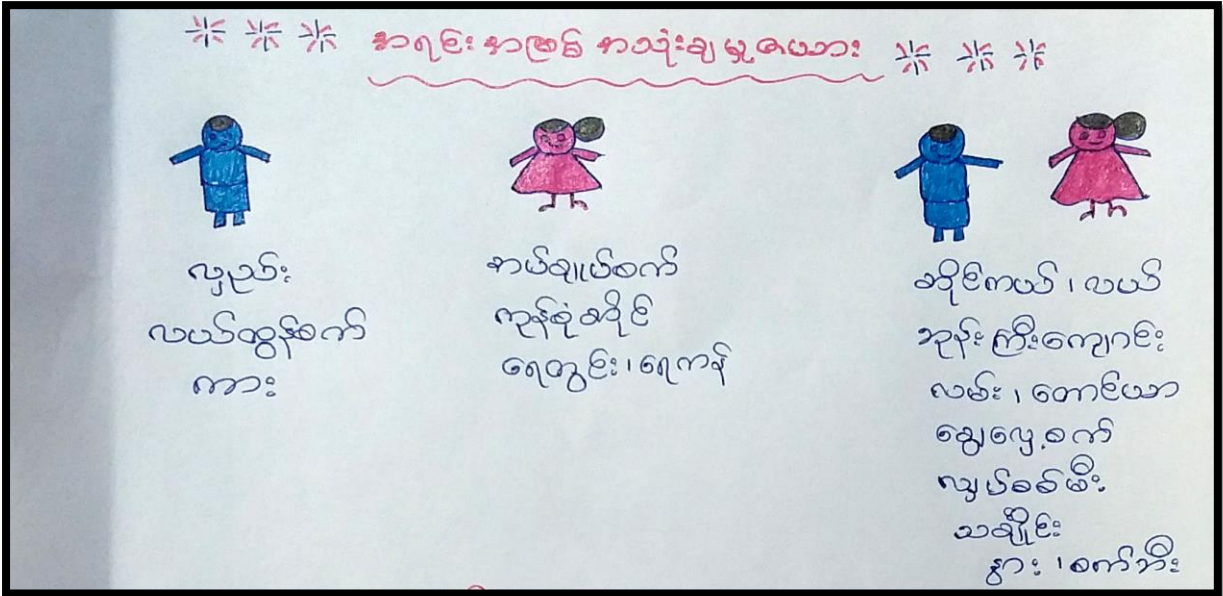 အရင်းအမြစ် အသုံးချမှုဇယား
လှည်း
လယ်ထွန်စက်
ကား
အပ်ချုပ်စက်
ကုန်စုံဆိုင်
ရေတွင်း၊ရေကန်
ဆိုင်ကယ်၊လယ်
ဘုန်းကြီးကျောင်း
လမ်း၊တောင်ယာ
ခြွေလှေ့စက်
လျှပ်စစ်မီး
သချိုင်း
နွား၊စက်ဘီး